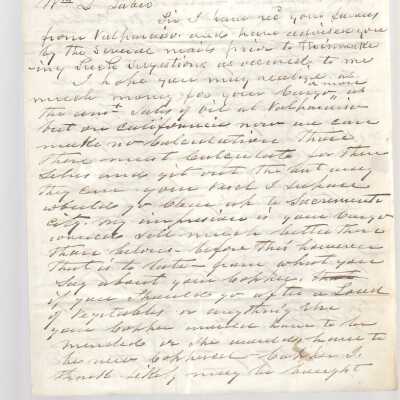 Wm
Sir I have recd your favors
from Valparaiso and have advised you
by the several mails prior to this
ing such as occured to me
I hope you may realize as
much money for your Cargo, as
the amt Sales of oil at Valparaiso
but on California now we can
make no Calculation those
there must Calculate for them
selves and get out the best way
they can your vessel I suppose
would go clear up to Sacremento
City. My impression is your Cargo
would sell much better there
than below - before this however
that is to late - from what you
say about your Copper.
if you should go after a Load
of Vegetables or anything else
your Copper would have to be
mended or she would have to
be new Coppered - Copper I
think likely may be bought